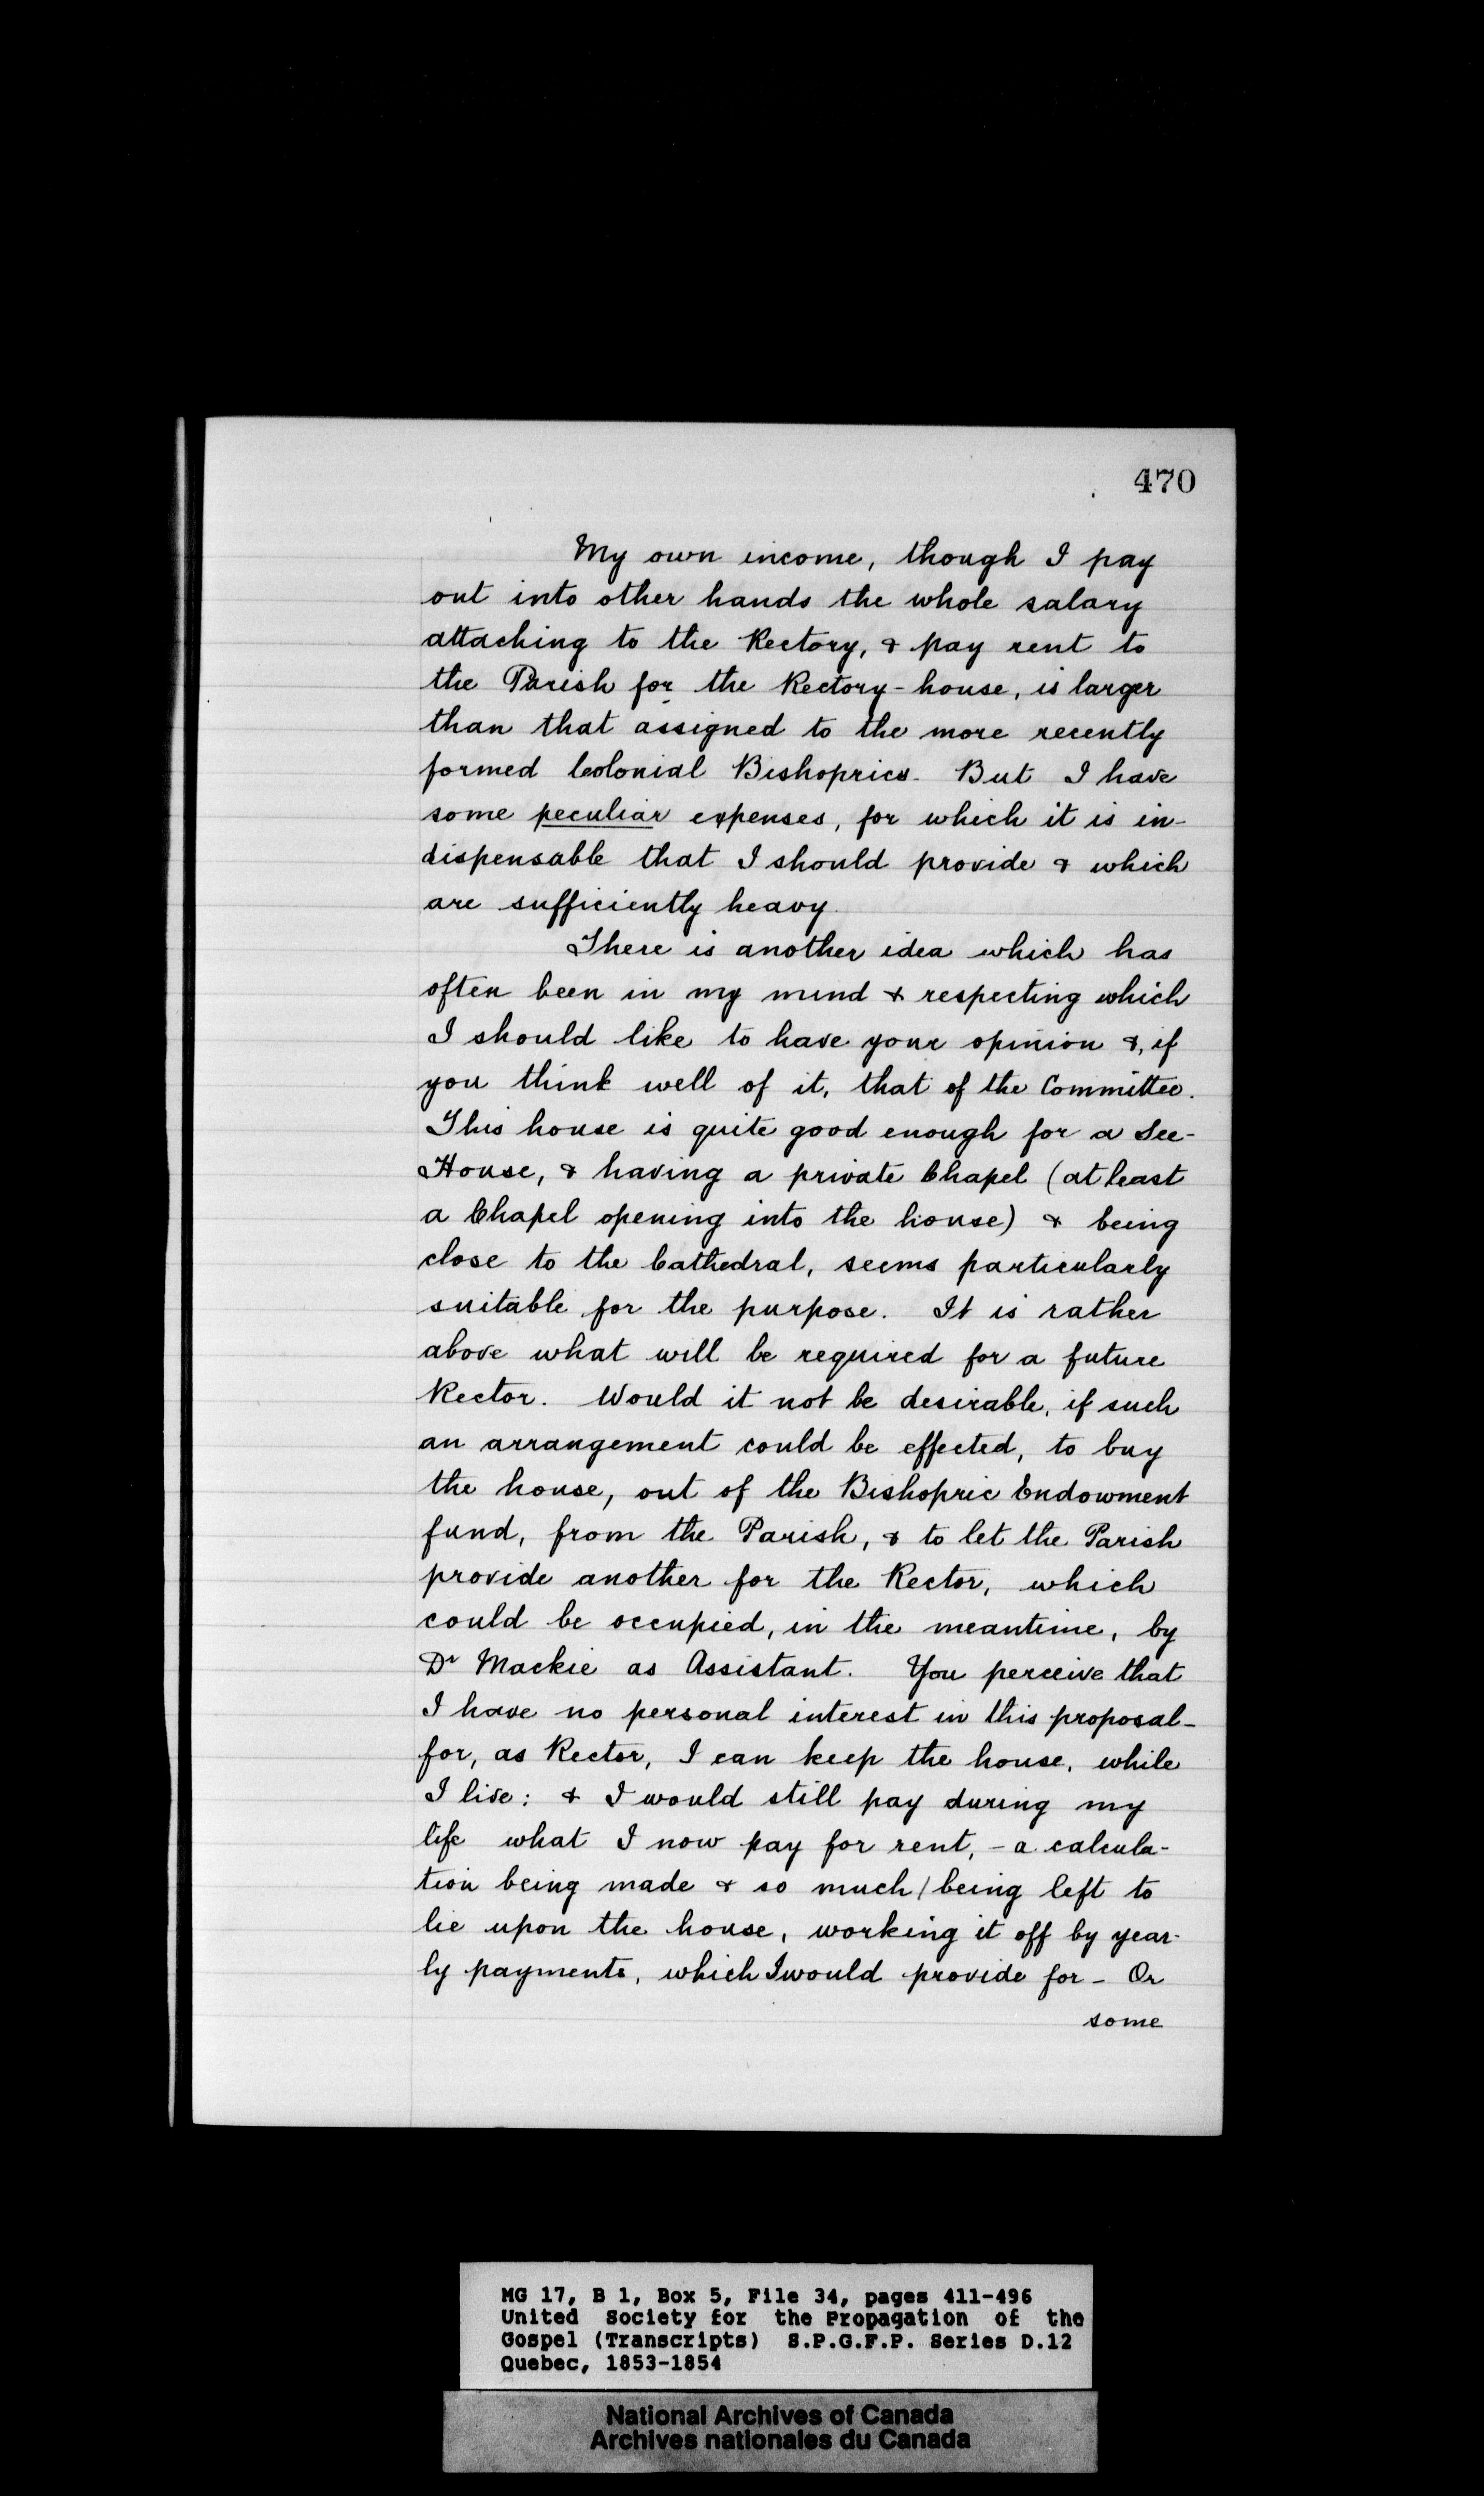 470
My own income, though I pay
out into other hands the whole salary
attaching to the Rectory, & pay rent to
the Parish for the Rectory-house, is larger
than that assigned to the more recently
formed Colonial Bishoprics. But I have
some peculiar expenses, for which it is in-
dispensable that I should provide & which
are sufficiently heavy.
There is another idea which has
often been in my mind & respecting which
I should like to have your opinion &, if
you think well of it, that of the Committee.
This house is quite good enough for a See-
House, & having a private Chapel (at least
a Chapel opening into the house) & being
close to the Cathedral, seems particularly
suitable for the purpose. It is rather
above what will be required for a future
Rector. Would it not be desirable, if such
an arrangement could be effected, to buy
the house, out of the Bishopric Endowment
fund, from the Parish, & to let the Parish
provide another for the Rector, which
could be occupied, in the meantime, by
Dr Mackie as Assistant. You perceive that
I have no personal interest in this proposal-
for, as Rector, I can keep the house, while
I live: & I would still pay during my
life what I now pay for rent, - a calcula-
tion being made & so much / being left to
lie upon the house, working it off by year-
ly payments, which I would provide for - Or
some
MG 17, B 1, Box 5, File 34, pages 411-496
United Society for the Propagation of the
Gospel (Transcripts) S.P.G.F.P. Series D.12
Quebec, 1853-1854
National Archives of Canada
Archives nationales du Canada